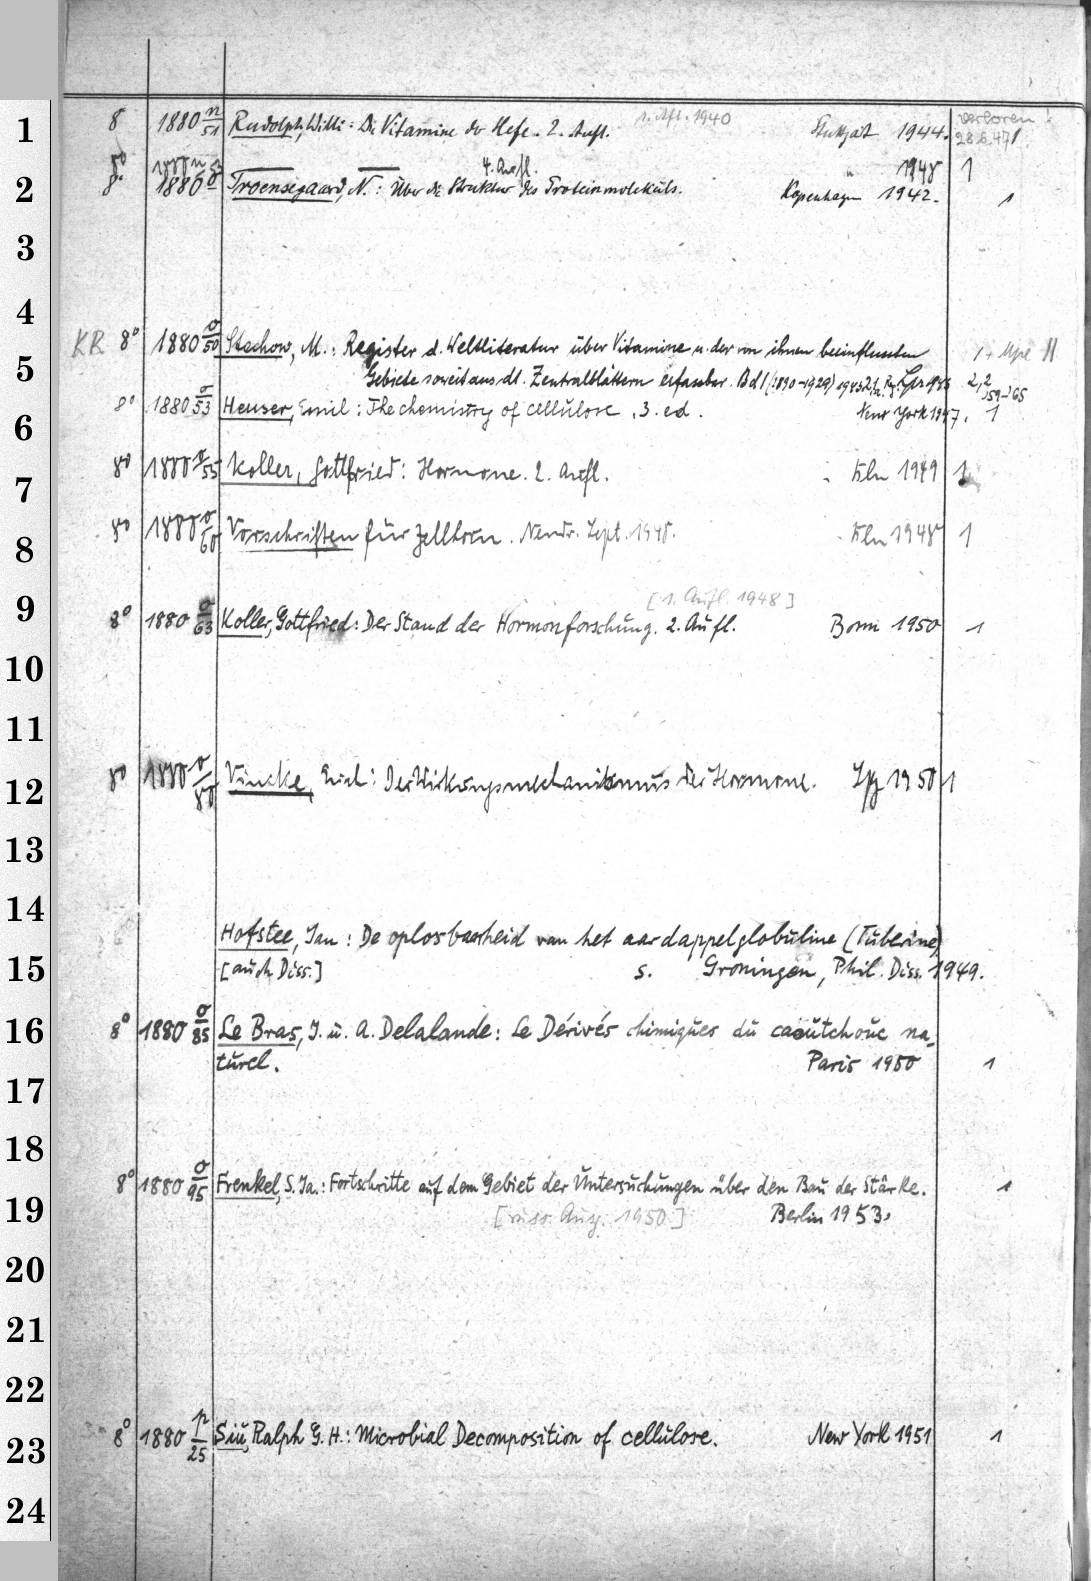 1. Aufl. 1940 verloren
8 1880 n/51 Rudolph, Willi: Die Vitamine der Hefe. 2. Aufl. Stuttgart 1944. 28.6.47 1
8° 4. Aufl. " 1948 1
8° 1880 Troensegaard, N.: Über die Struktur des Proteinmoleküls. Kopenhagen 1942. 1
KR 8° 1880 σ/50 Stachow, M.: Register d. Weltliteratur über Vitamine u. der von ihnen beeinflussten 1 +
Gebiete soweit aus dt. Zentralblättern erfassbar. Bd 1 (1890-1929) 2,2
8° 1880 σ/53 Heuser, Emil: The chemistry of cellulose. 3. ed. New York 1947. 1
8° 1880 σ/55 Koller, Gottfried: Hormone. 2. Aufl. Bln 1949 1
8° 1880 σ/60 Vorschriften für Zellhorn. Neudr. Sept. 1948. Bln 1948 1
[1. Aufl. 1948]
8° 1880 σ/63 Koller, Gottfried: Der Stand der Hormonforschung. 2. Aufl. Bonn 1950 1
8° 1880 σ/80 Vincke, Erich: Der Wirkungsmechanismus der Hormone. Lpg 1950 1
Hofstee, Jan: De oplosbaarheid van het aardappelglobuline (Tuberine)
[auch Diss.] s. Groningen, Phil. Diss. 1949.
8° 1880 σ/85 Le Bras, J. u. A. Delalande: Le Dérivés chimiques du caoutchouc na-
turel. Paris 1950 1
8° 1880 σ/95 Frenkel, S. Ja.: Fortschritte auf dem Gebiet der Untersuchungen über den Bau der Stärke. 1
[russ. Ausg. 1950] Berlin 1953.
8° 1880 p/25 Siu, Ralph G. H.: Microbial Decomposition of cellulose. New York 1951 1
1
2
3
4
5
6
7
8
9
10
11
12
13
14
15
16
17
18
19
20
21
22
23
24